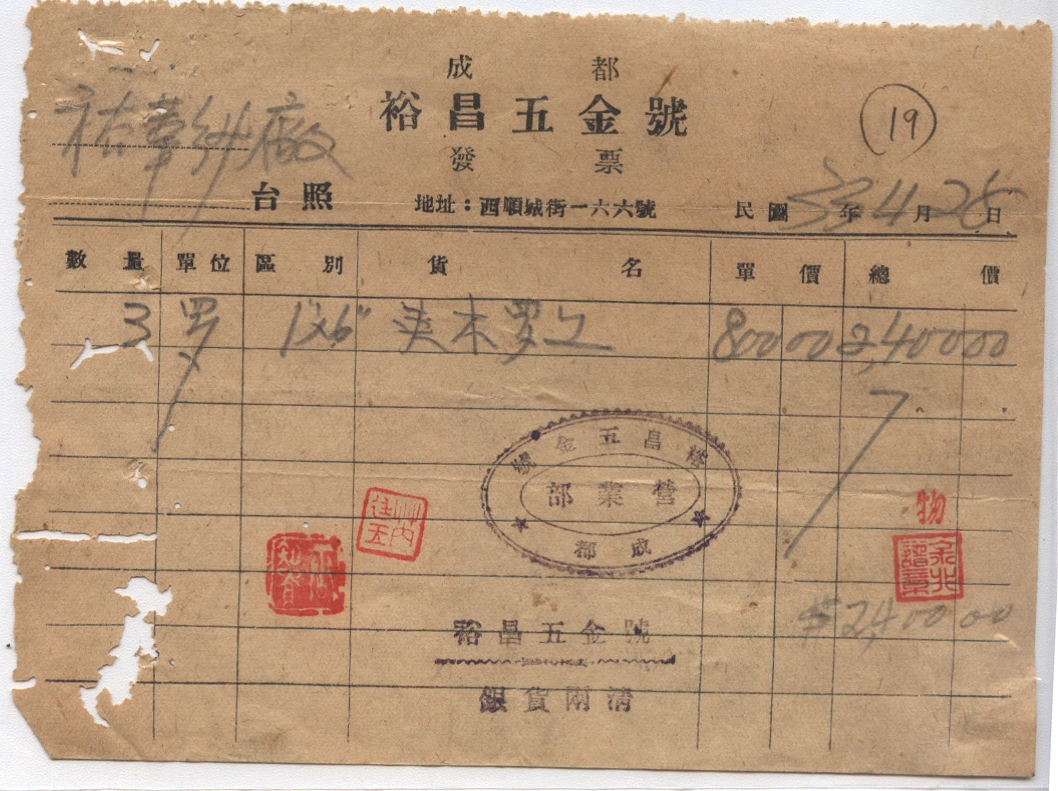 成都
裕昌五金號
發票
19
廠
台照
地址：西順城街一六六號
民國 33 年 4 月 25 日
數量 單位 區別 貨名 單價 總價
3 罗 1"x6" 木罗 800 00 2,400 00
裕昌五金號
營業部
成都
物
$2,400 00
裕昌五金號
銀貨兩清